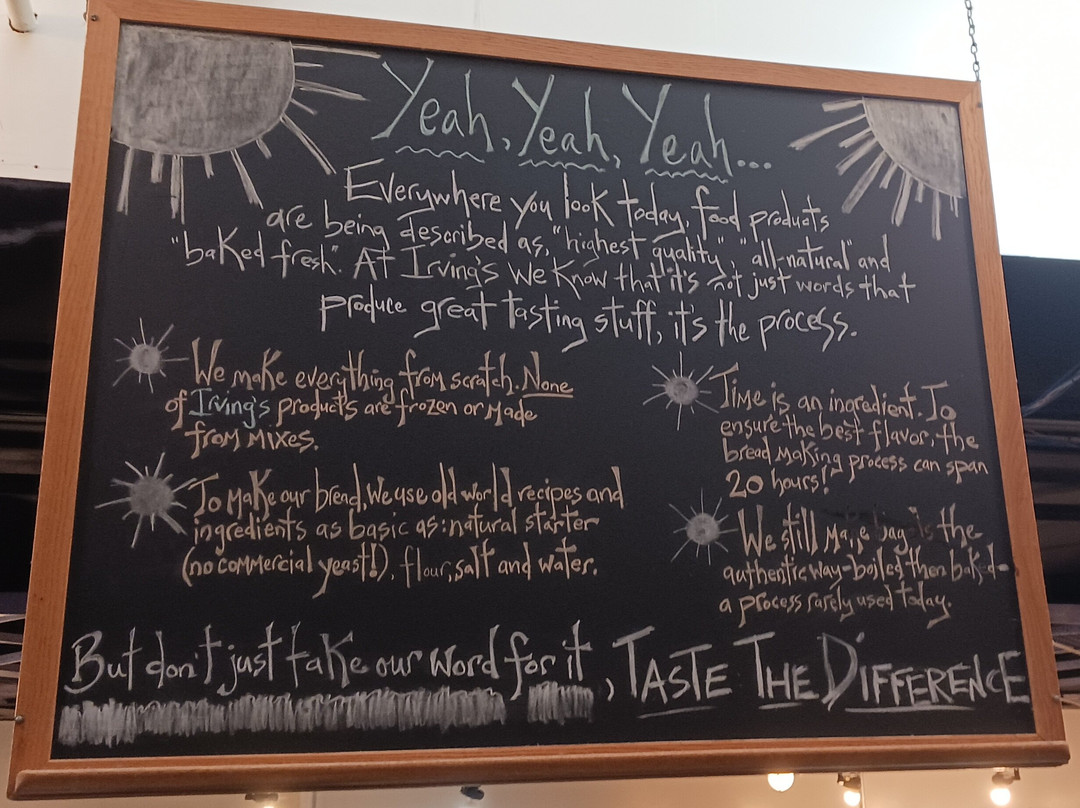 Yeah, Yeah, Yeah...
Everywhere you look today, food products
are being described as, "highest quality", "all-natural" and
"baked fresh". At Irving's we know that it's not just words that
produce great tasting stuff, it's the process.
We make everything from scratch. None
of Irving's products are frozen or made
from mixes.
To make our bread, we use old world recipes and
ingredients as basic as: natural starter
(no commercial yeast!), flour, salt and water.
Time is an ingredient. To
ensure the best flavor, the
bread making process can span
20 hours!
We still the
authentic way-boiled then baked-
a process rarely used today.
But don't just take our word for it, TASTE THE DIFFERENCE